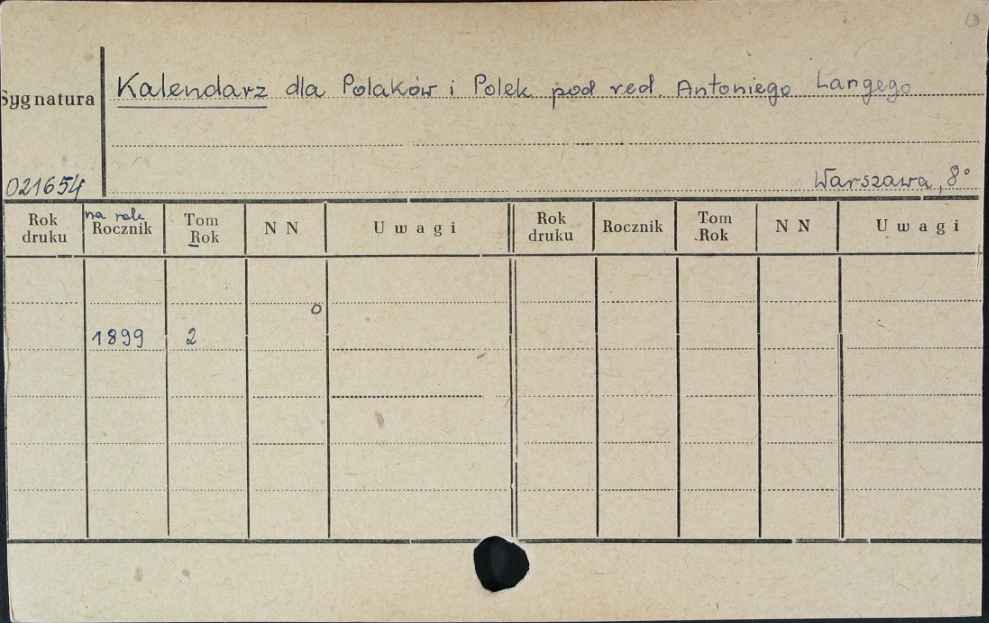 Kalendarz dla Polaków i Polek pod red. Antoniego Langego
Sygnatura
Warszawa, 8°
021654
Rok druku
na rok Rocznik
Tom Rok
N N
Uwagi
Rok druku
Rocznik
Tom Rok
N N
Uwagi
1899 2